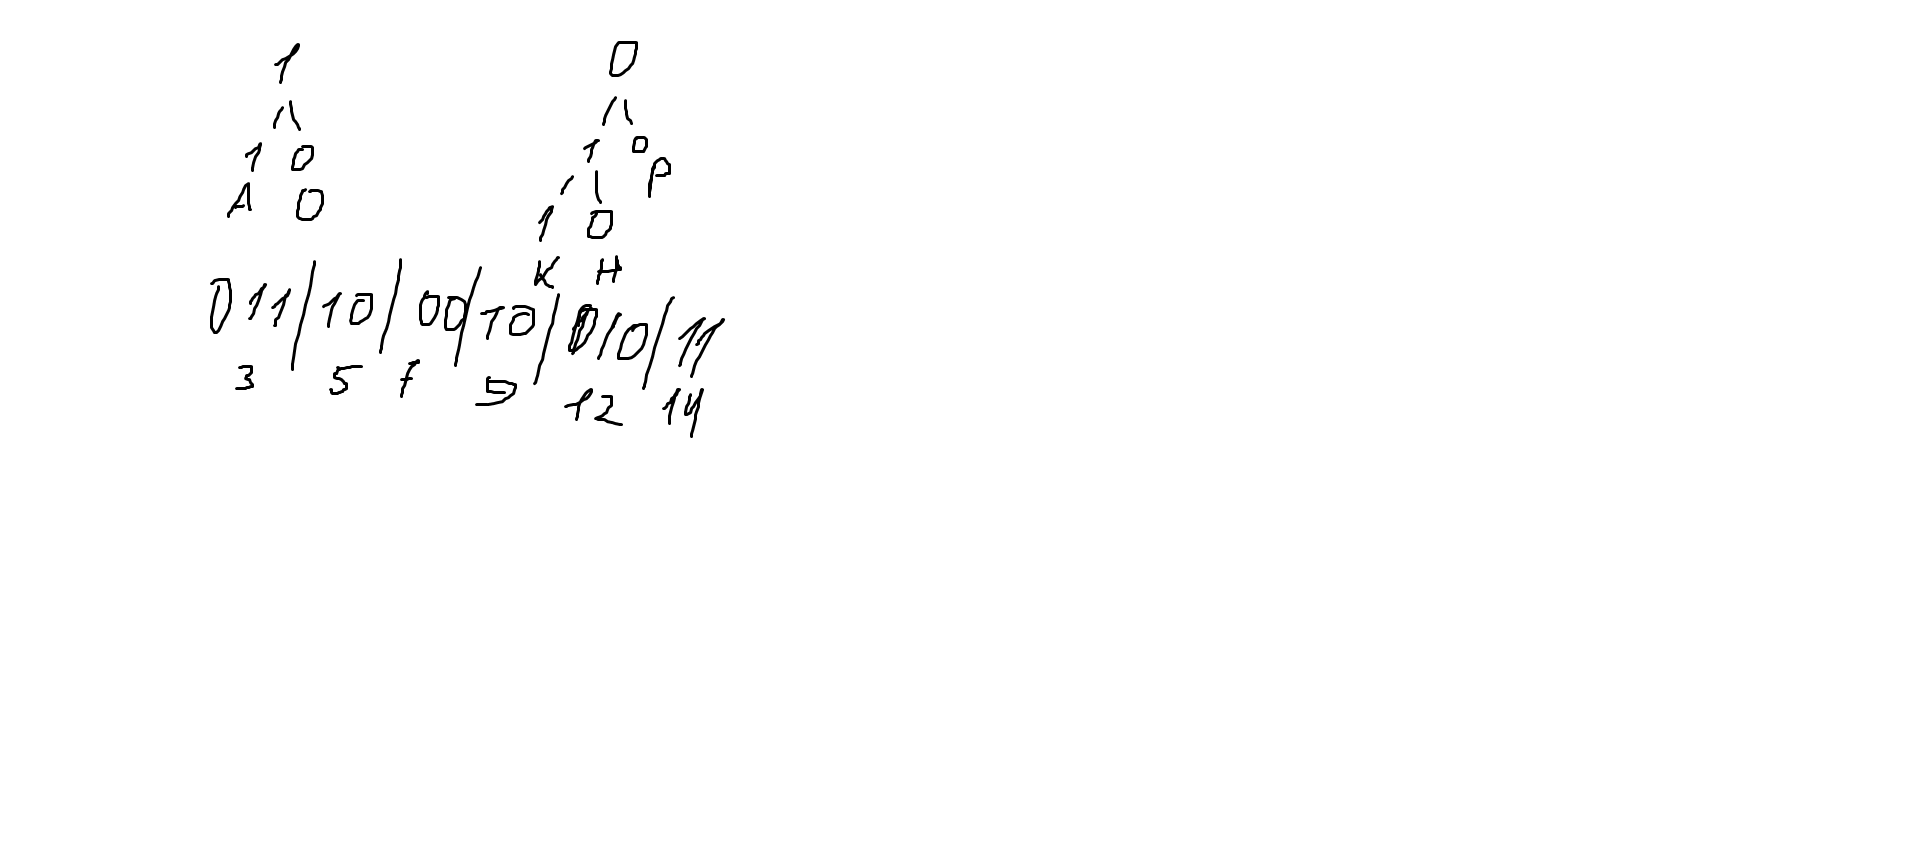 1 0
1 0 1 0
A O P
1 0
K H
011/10/00/10/010/11
3 5 7 5 12 14